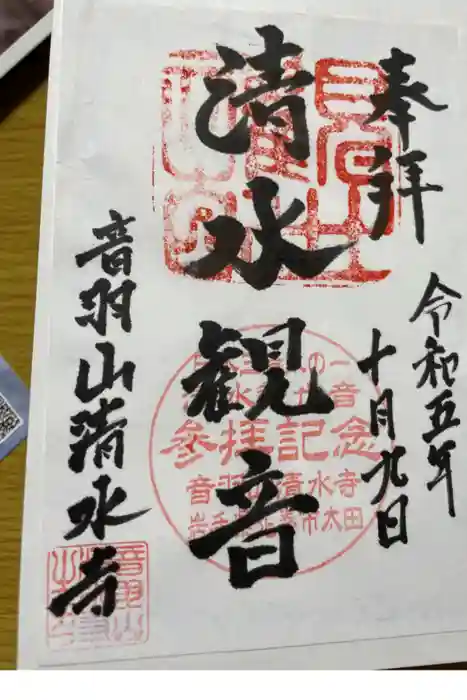 奉拝
令和五年
十月九日
清水観音
参拝記念
音羽山清水寺
岩手県花巻市太田
音羽山清水寺